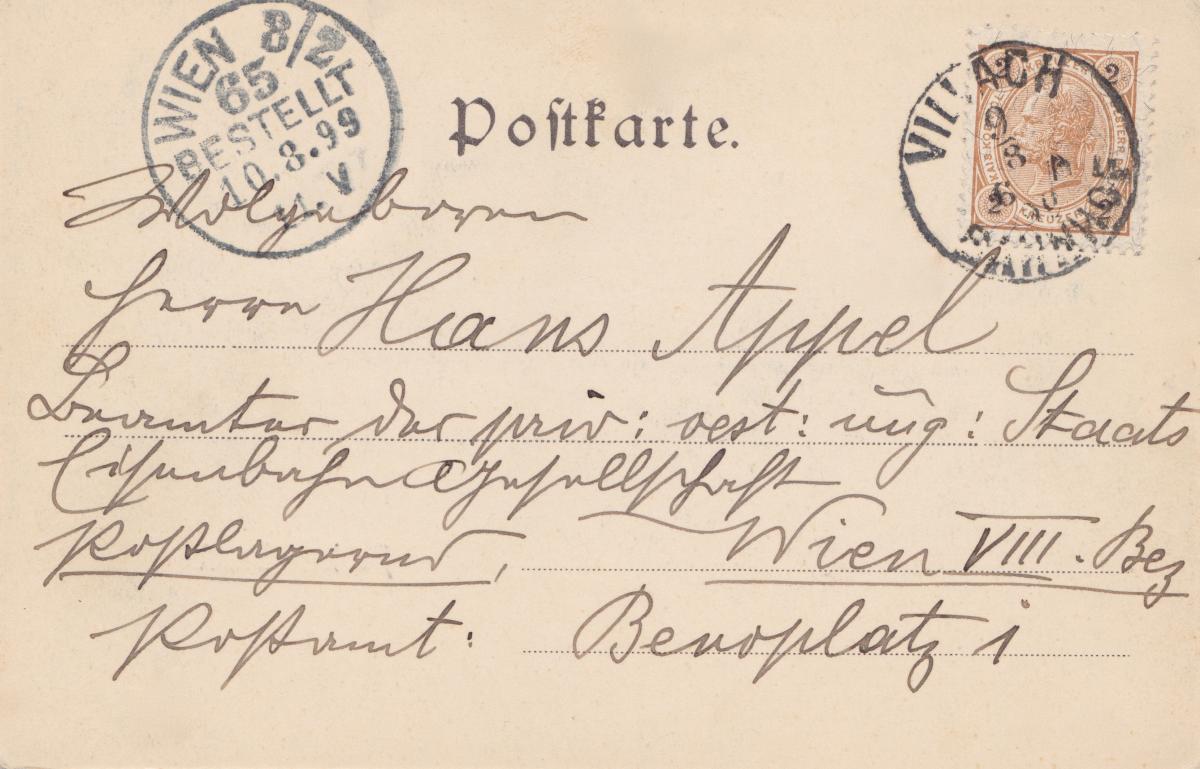 WIEN 8/2
65
BESTELLT
10.8.99
1. V
Postkarte.
VILLACH
9/8
2 2
KREUZ
2 2
Wolgeboren
Herrn Hans Appel
Beamter der priv: oest: ung: Staats
Eisenbahn Gesellschaft
postlagernd, Wien VIII. Bez
Postamt: Benoplatz 1